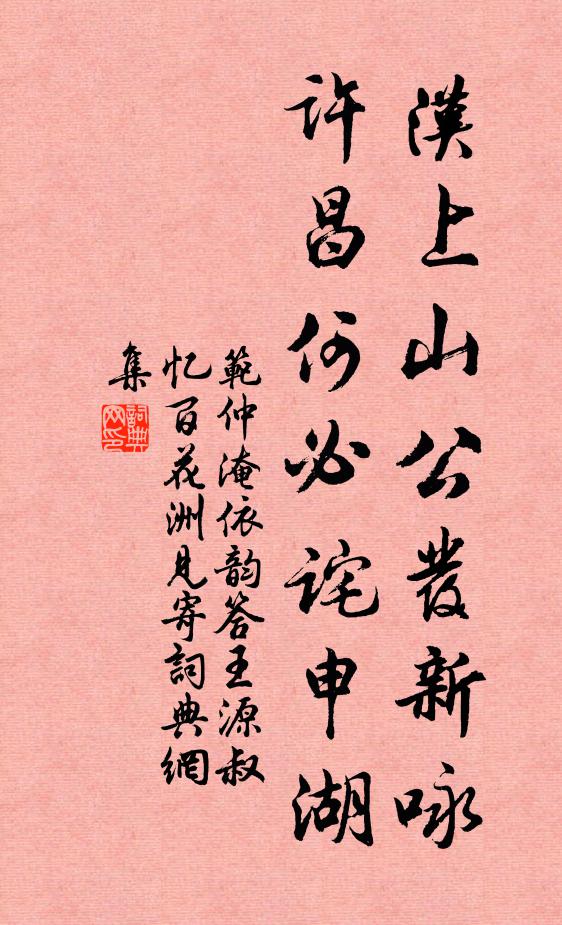 漢上山公發新咏
許昌何必詫申湖
範仲淹依韵答王源叔
忆百花洲見寄詞典網
集
詞典
网印